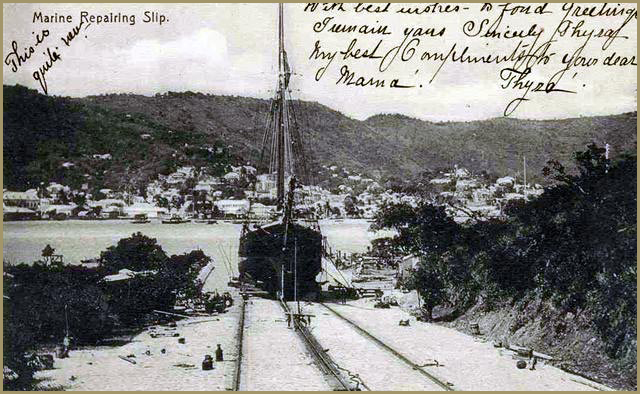 Marine Repairing Slip.
This is
quite near
With best wishes & fond Greetings
I remain yours Sincerely Thyra
My best Compliments to your dear
Mama!
Thyra!